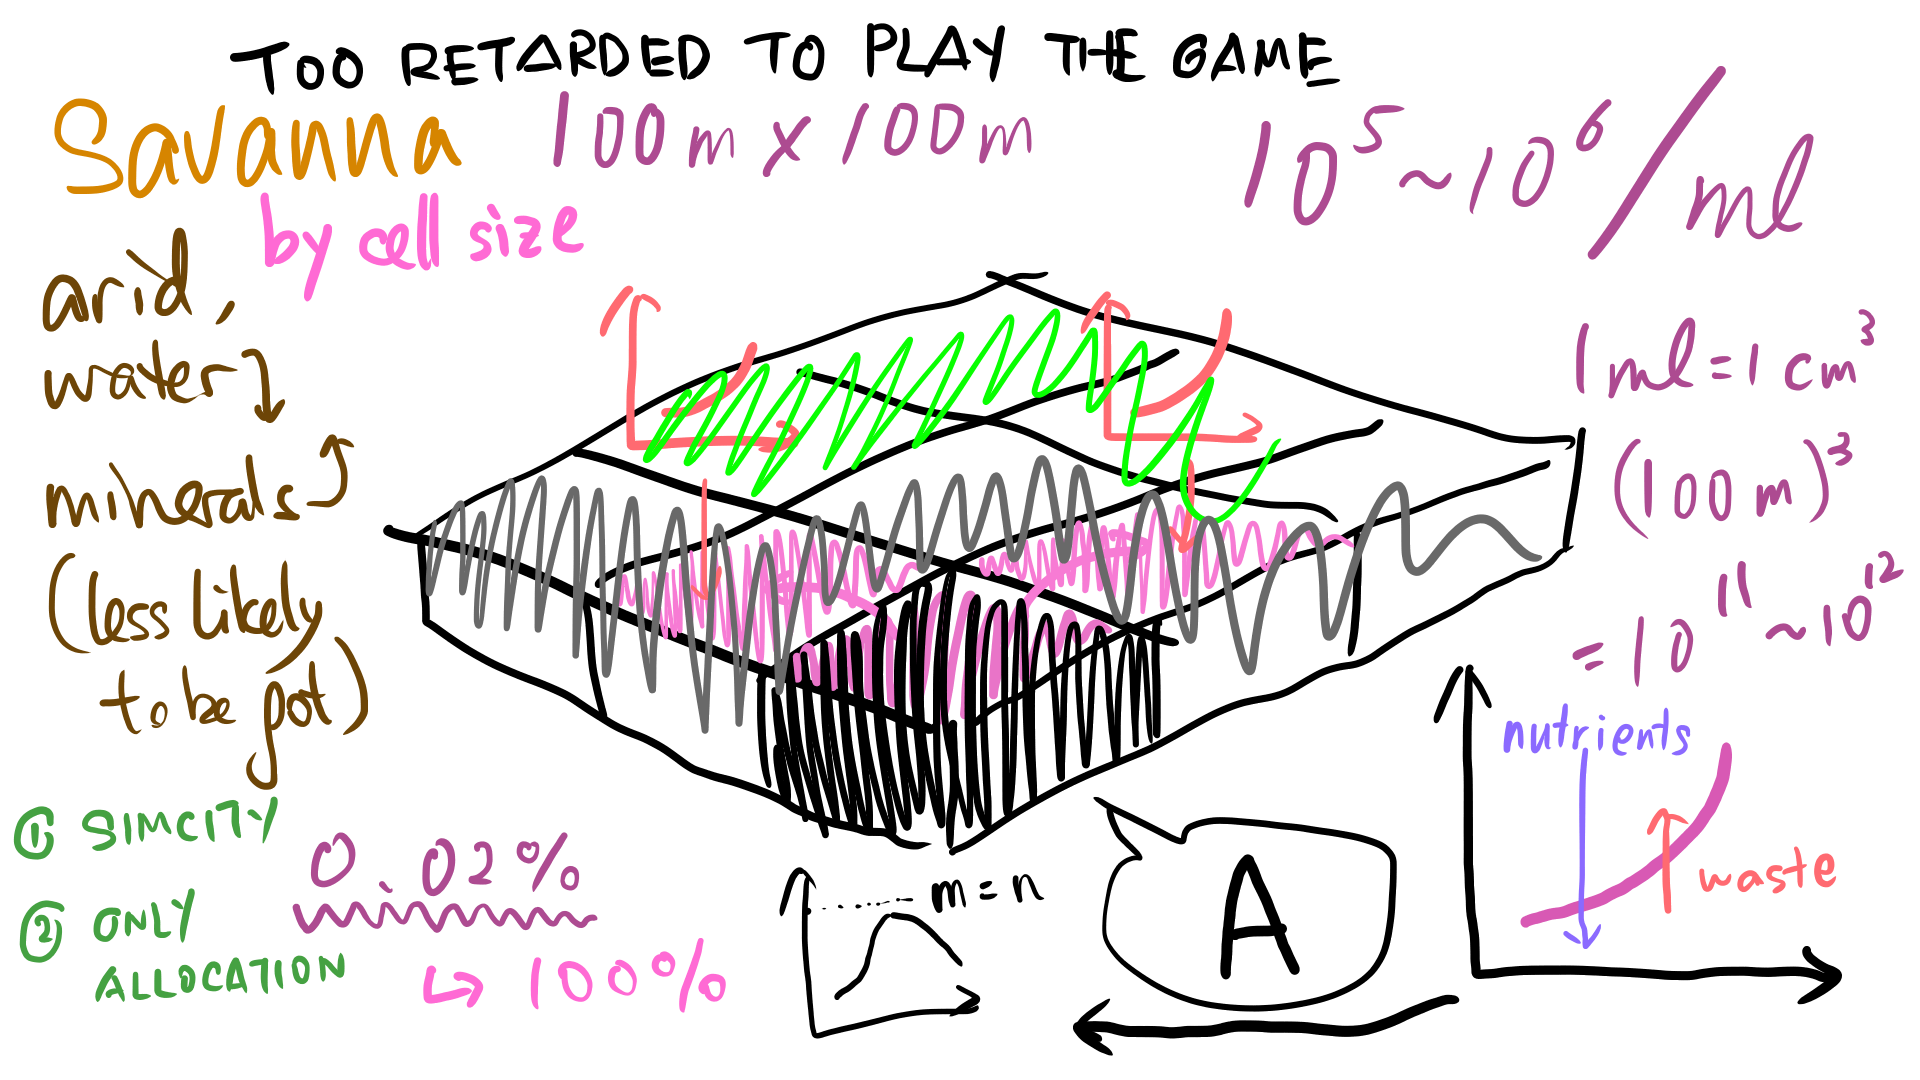 TOO RETARDED TO PLAY THE GAME
Savanna
100m x 100m
10⁵~10⁶/ml
by cell size
arid,
water↓
minerals↑
(less likely
to be got)
1ml=1cm³
(100m)³
=10¹¹~10¹²
nutrients
waste
① SIMCITY
② ONLY
ALLOCATION
0.02%
↳ 100%
m=n
A